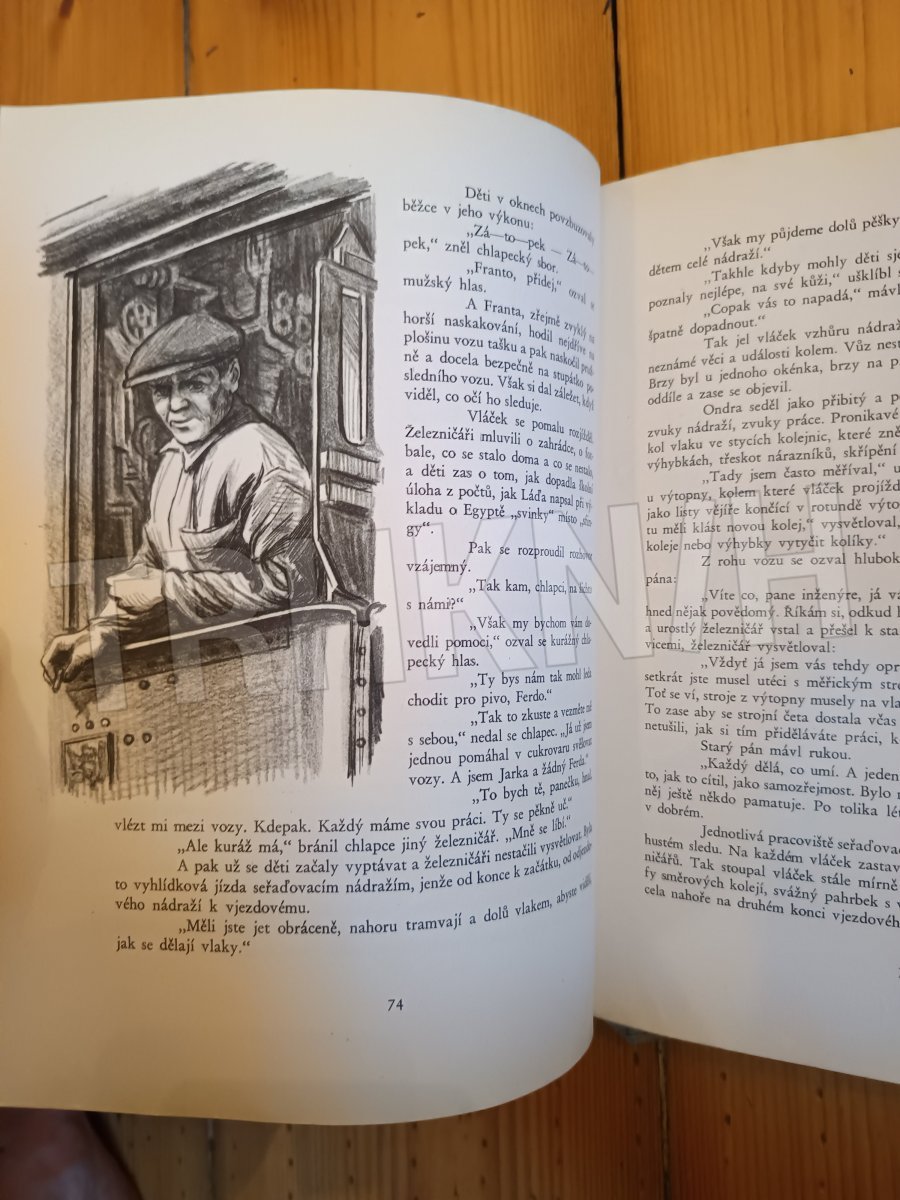 Děti v oknech povzbuzovaly
běžce v jeho výkonu:
„Zá—to—pek — Zá—to—
pek,“ zněl chlapecký sbor.
„Franto, přidej,“ ozval se
mužský hlas.
A Franta, zřejmě zvyklý na
horší naskakování, hodil nejdříve na
plošinu vozu tašku a pak naskočil
ně a docela bezpečně na stupátko po-
sledního vozu. Však si dal záležet, když
viděl, co očí ho sleduje.
Vláček se pomalu rozjížděl.
Železničáři mluvili o zahrádce, o fot-
bale, co se stalo doma a co se nestalo,
a děti zas o tom, jak dopadla školní
úloha z počtů, jak Láďa napsal při vý-
kladu o Egyptě „svinky“ místo „sfin-
gy“.
Pak se rozproudil rozhovor
vzájemný.
„Tak kam, chlapci, na
s námi?“
„Však my bychom vám do-
vedli pomoci,“ ozval se kurážný chla-
pecký hlas.
„Ty bys nám tak mohl leda
chodit pro pivo, Ferdo.“
„Tak to zkuste a vezměte mě
s sebou,“ nedal se chlapec. „Já už jsem
jednou pomáhal v cukrovaru
vozy. A jsem Jarka a žádný Ferda.“
„To bych tě, panečku, hnal,
vlézt mi mezi vozy. Kdepak. Každý máme svou práci. Ty se pěkně uč.“
„Ale kuráž má,“ bránil chlapce jiný železničář. „Mně se líbí.“
A pak už se děti začaly vyptávat a železničáři nestačili vysvětlovat. Byla
to vyhlídková jízda seřaďovacím nádražím, jenže od konce k začátku, od odjezdo-
vého nádraží k vjezdovému.
„Měli jste jet obráceně, nahoru tramvají a dolů vlakem, abyste viděli,
jak se dělají vlaky.“
74
„Však my půjdeme dolů pěšky
dětem celé nádraží.“
„Takhle kdyby mohly děti
poznaly nejlépe, na své kůži,“ ušklíbl
„Copak vás to napadá,“
špatně dopadnout.“
Tak jel vláček vzhůru
neznámé věci a události kolem. Vůz
Brzy byl u jednoho okénka, brzy na
oddíle a zase se objevil.
Ondra seděl jako přibitý a
zvuky nádraží, zvuky práce. Pronikavé
kol vlaku ve stycích kolejnic, které
výhybkách, třeskot nárazníků, skřípění
„Tady jsem často měříval,“
u výtopny, kolem které vláček
jako listy vějíře končící v rotundě
tu měli klást novou kolej,“ vysvětloval,
koleje nebo výhybky vytyčit kolíky.“
Z rohu vozu se ozval
pána:
„Víte co, pane inženýre, já
hned nějak povědomý. Říkám si, odkud
a urostlý železničář vstal a přešel k
vicemi, železničář vysvětloval:
„Vždyť já jsem vás tehdy
setkrát jste musel utéci s měřickým
Toť se ví, stroje z výtopny musely na
To zase aby se strojní četa dostala včas
netušili, jak si tím přiděláváte práci,
Starý pán mávl rukou.
„Každý dělá, co umí. A jeden
to, jak to cítil, jako samozřejmost. Bylo
něj ještě někdo pamatuje. Po tolika
v dobrém.
Jednotlivá pracoviště
hustém sledu. Na každém vláček
ničářů. Tak stoupal vláček stále mírně
fy směrových kolejí, svážný pahrbek s
cela nahoře na druhém konci